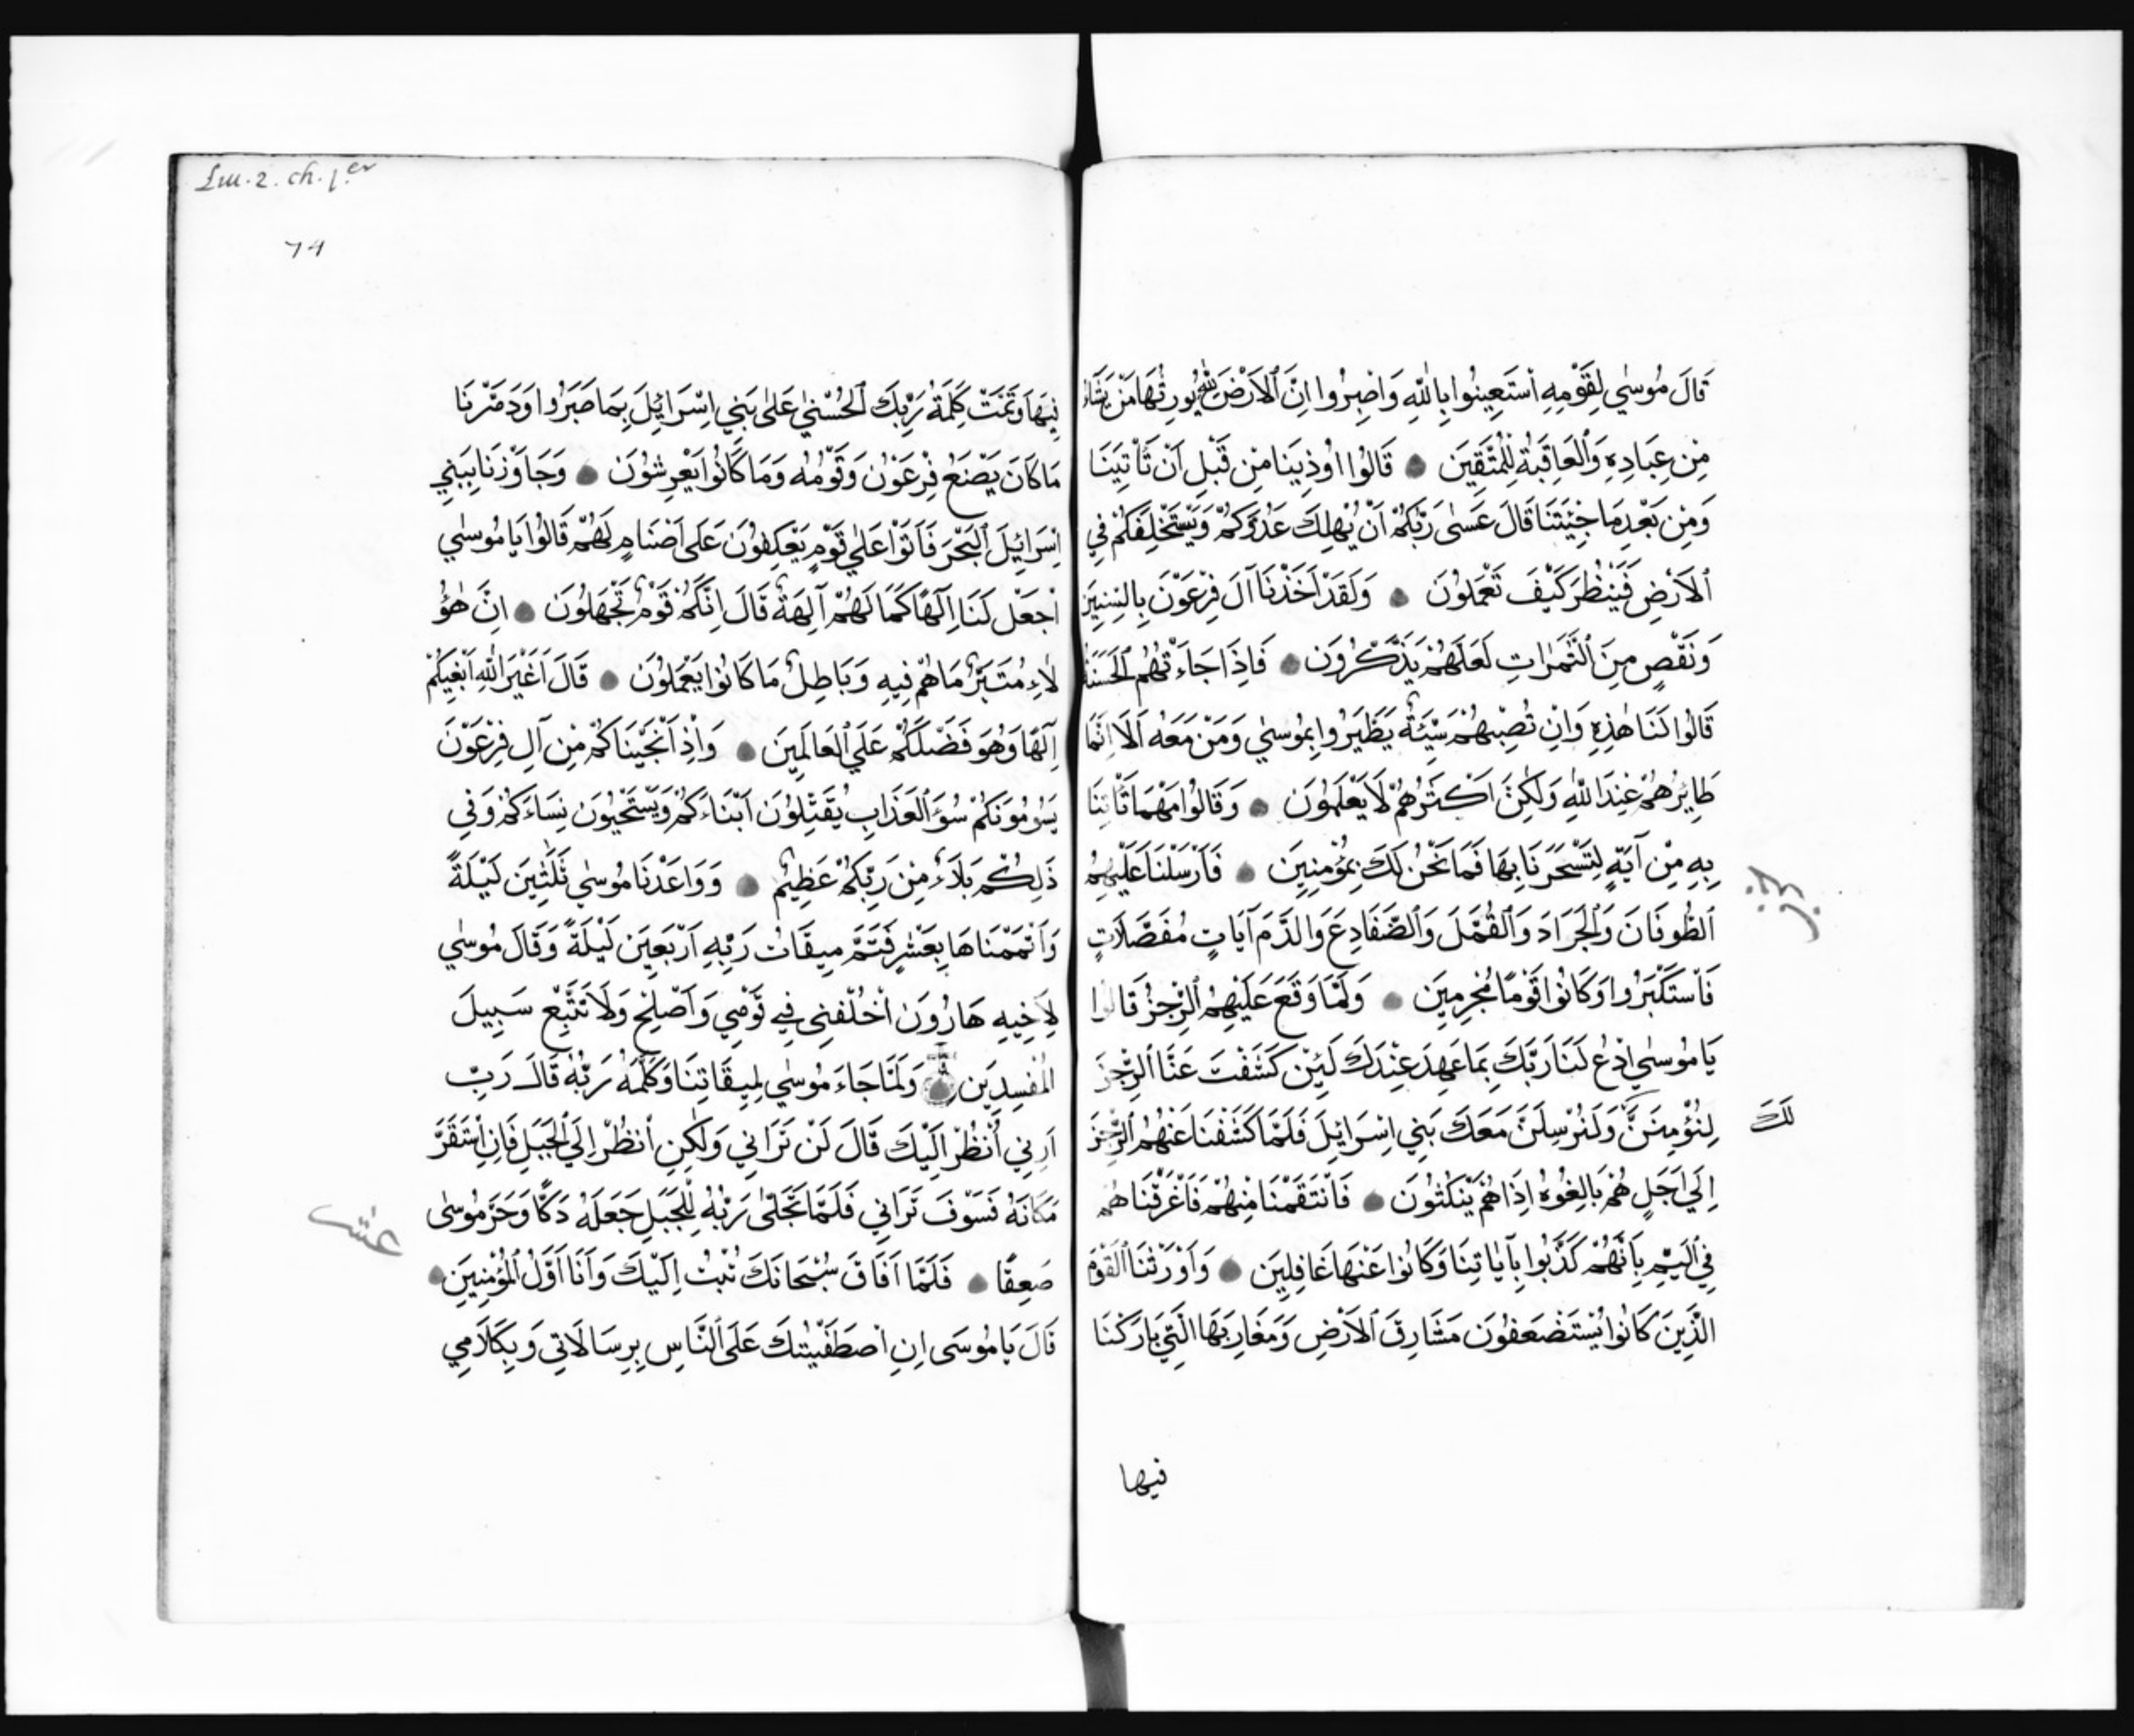 قَالَ مُوسٰي لِقَوْمِهِ ٱسْتَعِينُوا بِاللّٰهِ وَاصْبِرُوا اِنَّ ٱلاَرْضَ لِلّٰهِ يُورِثُهَا مَنْ يَشَآءُ
مِن عِبَادِهِ وَٱلعَاقِبَةُ لِلْمُتَّقِيَن ● قَالُوا اوُذِينَا مِن قَبْلِ اَنْ تَأْتِيَنَا
وَمِن بَعْدِ مَا جِئْتَنَا قَالَ عَسٰى رَبُّكُمْ اَنْ يُهْلِكَ عَدُوَّكُمْ وَيَسْتَخْلِفَكُمْ فِي
ٱلاَرْضِ فَيَنْظُرَ كَيْفَ تَعْمَلُونَ ● وَلَقَدْ اَخَذْنَا آلَ فِرْعَوْنَ بِالسِّنِيَن
وَنَقْصٍ مِنَ ٱلثَّمَرٰاتِ لَعَلَّهُمْ يَذَّكَّرُونَ ● فَاِذَا جَاءَتْهُمُ ٱلحَسَنَةُ
قَالُوا لَنَا هٰذِهِ وَاِنْ تُصِبْهُمْ سَيِّئَةٌ يَطَّيَّرُوا بِمُوسٰي وَمَنْ مَعَهُ اَلَا اِنَّمَا
طَايِرُهُمْ عِنْدَ اللّٰهِ وَلٰكِنَّ اَكْثَرَهُمْ لَا يَعْلَمُونَ ● وَقَالُوا مَهْمَا تَاْتِنَا
بِهِ مِنْ آيَةٍ لِتَسْحَرَنَا بِهَا فَمَا نَحْنُ لَكَ بِمُؤْمِنِيَن ● فَاَرْسَلْنَا عَلَيْهِمُ
ٱلطُّوفَانَ وَٱلْجَرَادَ وَٱلقُمَّلَ وَٱلضَّفَادِعَ وَالدَّمَ آيَاتٍ مُفَصَّلَاتٍ
فَاْسْتَكْبَرُوا وَكَانُوا قَوْمًا مُجْرِمِيَن ● وَلَمَّا وَقَعَ عَلَيْهِمُ ٱلرِّجْزُ قَالُوا
يَا مُوسٰي ادْعُ لَنَا رَبَّكَ بِمَا عَهِدَ عِنْدَكَ لَئِنْ كَشَفْتَ عَنَّا ٱلرِّجْزَ
لِنُؤْمِنَنَّ وَلَنُرْسِلَنَّ مَعَكَ بَنِي اِسْرَائِيلَ فَلَمَّا كَشَفْنَا عَنْهُمُ ٱلرِّجْزَ
لَكَ
اِلَي اَجَلٍ هُمْ بَالِغُوهُ اِذَا هُمْ يَنْكُثُونَ ● فَانْتَقَمْنَا مِنْهُمْ فَاَغْرَقْنَاهُمْ
فِي ٱليَمِّ بِاَنَّهُمْ كَذَّبُوا بِآيَاتِنَا وَكَانُوا عَنْهَا غَافِلِيَن ● وَاَوْرَثْنَا ٱلقَوْمَ
الَّذِينَ كَانُوا يُسْتَضْعَفُونَ مَشَارِقَ ٱلاَرْضِ وَمَغَارِبَهَا الَّتِي بَارَكْنَا
فيها
Liu. 2. ch. 1.er
74
فِيهَا وَتَمَّتْ كَلِمَةُ رَبِّكَ ٱلحُسْنٰي عَلٰى بَنِي اِسْرَائِيلَ بِمَا صَبَرُوا وَدَمَّرْنَا
مَا كَانَ يَصْنَعُ فِرْعَوْنُ وَقَوْمُهُ وَمَا كَانُوا يَعْرِشُونَ ● وَجَاوَزْنَا بِبَنِي
اِسْرَائِيلَ ٱلبَحْرَ فَاَتَوْا عَلٰي قَوْمٍ يَعْكِفُونَ عَلَى اَصْنَامٍ لَهُمْ قَالُوا يَا مُوسٰي
اْجْعَلْ لَنَا اِلٰهًا كَمَا لَهُمْ آلِهَةٌ قَالَ اِنَّكُمْ قَوْمٌ تَجْهَلُونَ ● اِنَّ هٰؤُ
لَاءِ مُتَبَّرٌ مَا هُمْ فِيهِ وَبَاطِلٌ مَا كَانُوا يَعْمَلُونَ ● قَالَ اَغَيْرَ اللّٰهِ اَبْغِيكُمْ
اِلٰهًا وَهُوَ فَضَّلَكُمْ عَلَي ٱلعَالَمِيَن ● وَاِذْ اَنْجَيْنَاكُمْ مِن آلِ فِرْعَوْنَ
يَسُومُونَكُمْ سُوءَ ٱلعَذَابِ يُقَتِّلُونَ اَبْنَاءَكُمْ وَيَسْتَحْيُونَ نِسَاءَكُمْ وَفِي
ذَلِكُمْ بَلَاءٌ مِنْ رَبِّكُمْ عَظِيمٌ ● وَوَاعَدْنَا مُوسٰي ثَلٰثِيَن لَيْلَةً
وَاَتْمَمْنَاهَا بِعَشْرٍ فَتَمَّ مِيقَاتُ رَبِّهِ اَرْبَعِيَن لَيْلَةً وَقَالَ مُوسٰي
لِاَخِيهِ هَارُونَ اْخْلُفْنِي فِي قَوْمِي وَاَصْلِحْ وَلَا تَتَّبِعْ سَبِيلَ
اْلمُفْسِدِيَن ● وَلَمَّا جَاءَ مُوسٰي لِمِيقَاتِنَا وَكَلَّمَهُ رَبُّهُ قَالَ رَبِّ
اَرِنِي أَنْظُرْ اِلَيْكَ قَالَ لَنْ تَرَانِي وَلٰكِنِ اْنظُرْ اِلَي ٱلجَبَلِ فَاِنِ اْسْتَقَرَّ
مَكَانَهُ فَسَوْفَ تَرَانِي فَلَمَّا تَجَلّٰى رَبُّهُ لِلْجَبَلِ جَعَلَهُ دَكًّا وَخَرَّ مُوسٰى
عشر
صَعِقًا ● فَلَمَّا اَفَاقَ سُبْحَانَكَ تُبْتُ اِلَيْكَ وَاَنَا اَوَّلُ ٱلمُؤْمِنِيَن ●
قَالَ يَا مُوسَى اِنِ اْصْطَفَيْتُكَ عَلَى ٱلنَّاسِ بِرِسَالَاتِي وَبِكَلَامِي